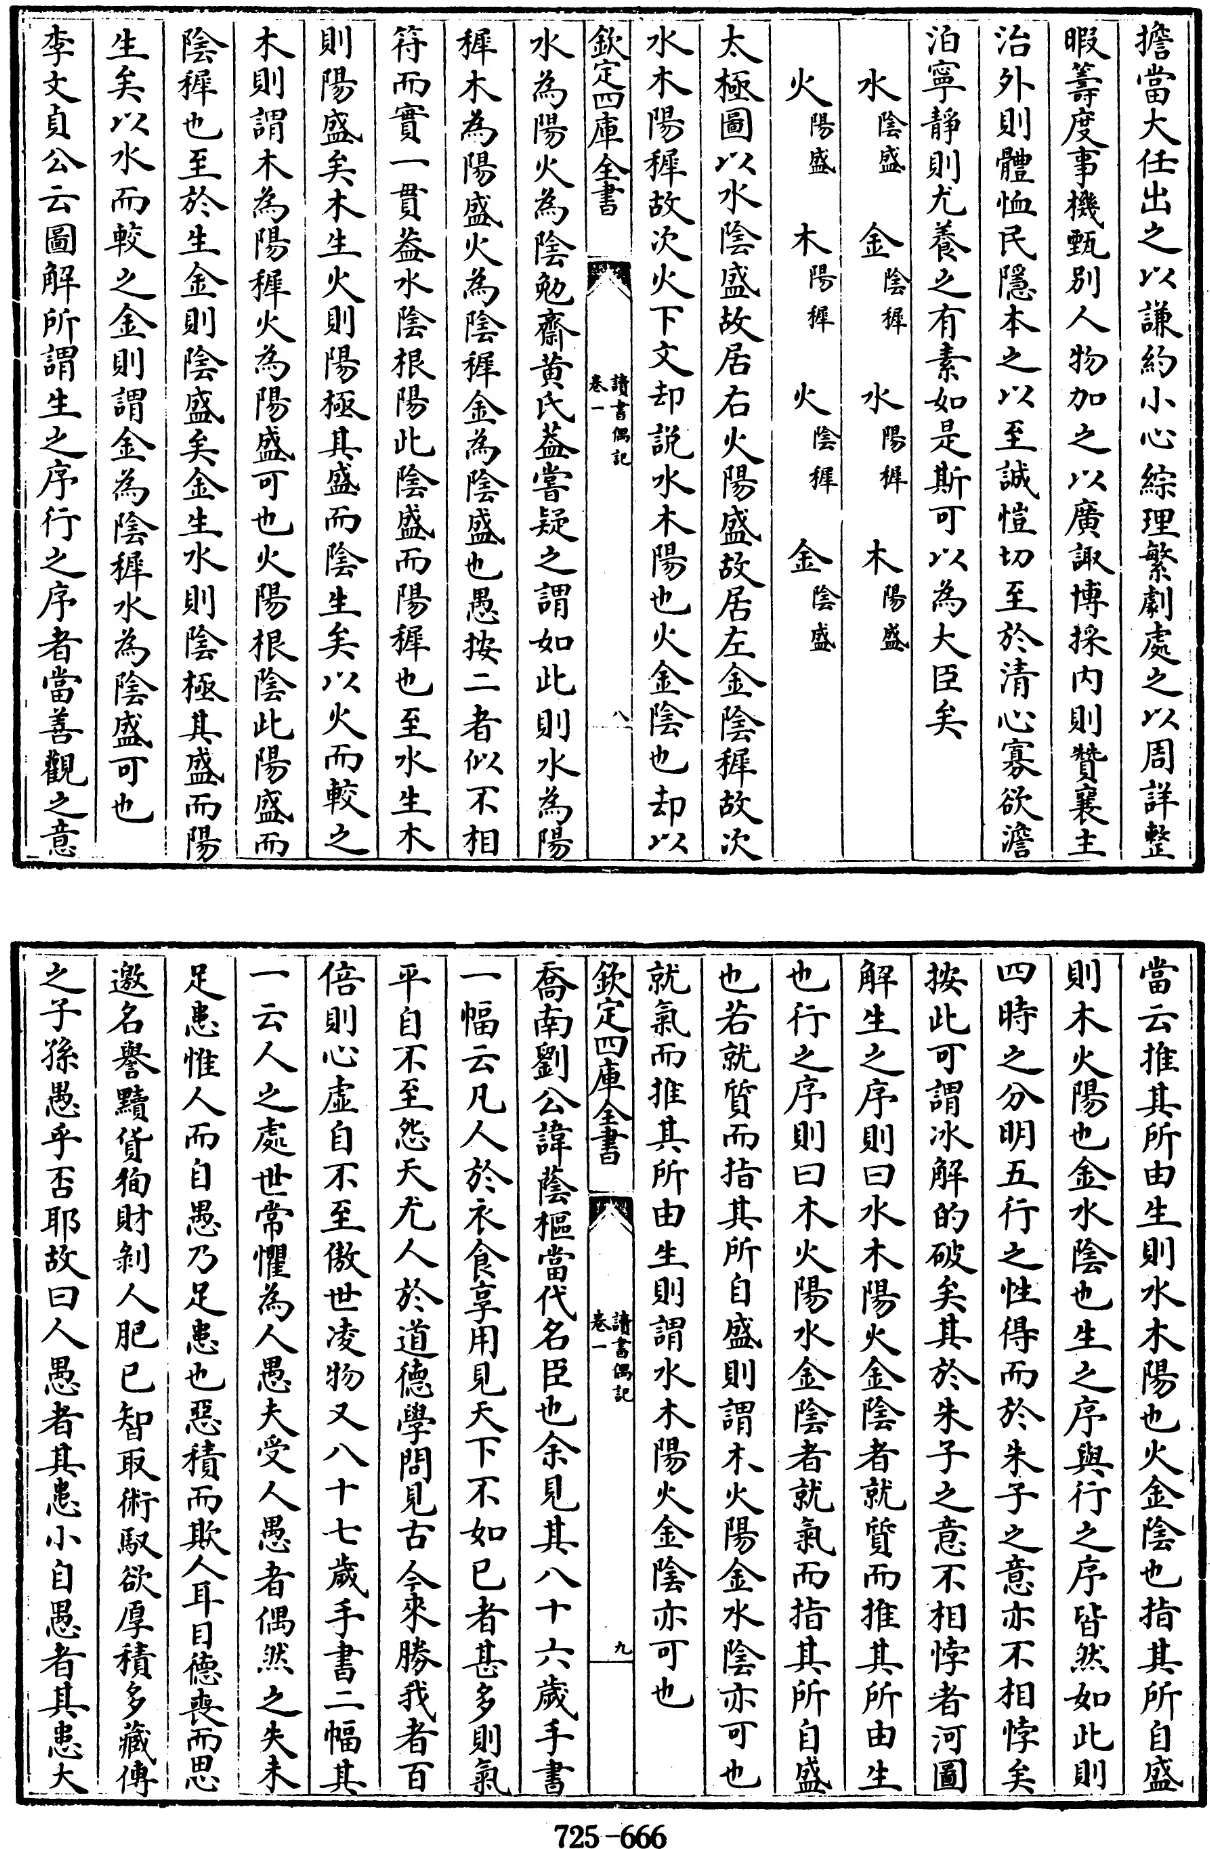 擔當大任出之以謙約小心綜理繁劇處之以周詳整
暇籌度事機甄别人物加之以廣諏博採内則贊襄主
治外則體恤民隱本之以至誠愷切至於清心寡欲澹
泊寧靜則尤養之有素如是斯可以為大臣矣
水陰盛 金陰穉 水陽穉 木陽盛
火陽盛 木陽穉 火陰穉 金陰盛
太極圖以水陰盛故居右火陽盛故居左金陰穉故次
水木陽穉故次火下文却説水木陽也火金陰也却以
欽定四庫全書 讀書偶記 卷一 八
水為陽火為陰勉齋黄氏葢嘗疑之謂如此則水為陽
穉木為陽盛火為陰穉金為陰盛也愚按二者似不相
符而實一貫葢水陰根陽此陰盛而陽穉也至水生木
則陽盛矣木生火則陽極其盛而陰生矣以火而較之
木則謂木為陽穉火為陽盛可也火陽根陰此陽盛而
陰穉也至於生金則陰盛矣金生水則陰極其盛而陽
生矣以水而較之金則謂金為陰穉水為陰盛可也
李文貞公云圖解所謂生之序行之序者當善觀之意
當云推其所由生則水木陽也火金陰也指其所自盛
則木火陽也金水陰也生之序與行之序皆然如此則
四時之分明五行之性得而於朱子之意亦不相悖矣
按此可謂冰解的破矣其於朱子之意不相悖者河圖
解生之序則曰水木陽火金陰者就質而推其所由生
也行之序則曰木火陽水金陰者就氣而指其所自盛
也若就質而指其所自盛則謂木火陽金水陰亦可也
就氣而推其所由生則謂水木陽火金陰亦可也
欽定四庫全書 讀書偶記 卷一 九
喬南劉公諱蔭樞當代名臣也余見其八十六歲手書
一幅云凡人於衣食享用見天下不如已者甚多則氣
平自不至怨天尤人於道德學問見古今來勝我者百
倍則心虚自不至傲世凌物又八十七歲手書二幅其
一云人之處世常懼為人愚夫受人愚者偶然之失未
足患惟人而自愚乃足患也惡積而欺人耳目德喪而思
邀名譽黷貨狥財剝人肥已智取術馭欲厚積多藏傳
之子孫愚乎否耶故曰人愚者其患小自愚者其患大
725-666